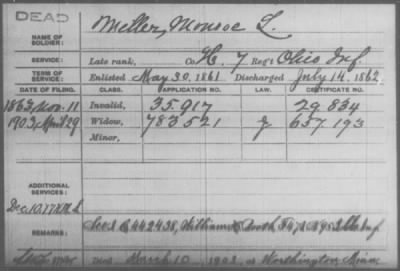 DEAD
NAME OF SOLDIER: Miller, Monroe L.
SERVICE: Late rank, Co H, 7 Reg't Ohio Inf.
TERM OF SERVICE: Enlisted May 30, 1861 Discharged July 14, 1862
DATE OF FILING. CLASS. APPLICATION NO. LAW. CERTIFICATE NO.
1862, Nov. 11 Invalid, 35.917 29 834
1903, April 29 Widow, 783 521 G 657.193
Minor,
ADDITIONAL SERVICES:
Dec. 10, 17
REMARKS: C 442438, William
Died March 10 1903, at Worthington, Minn